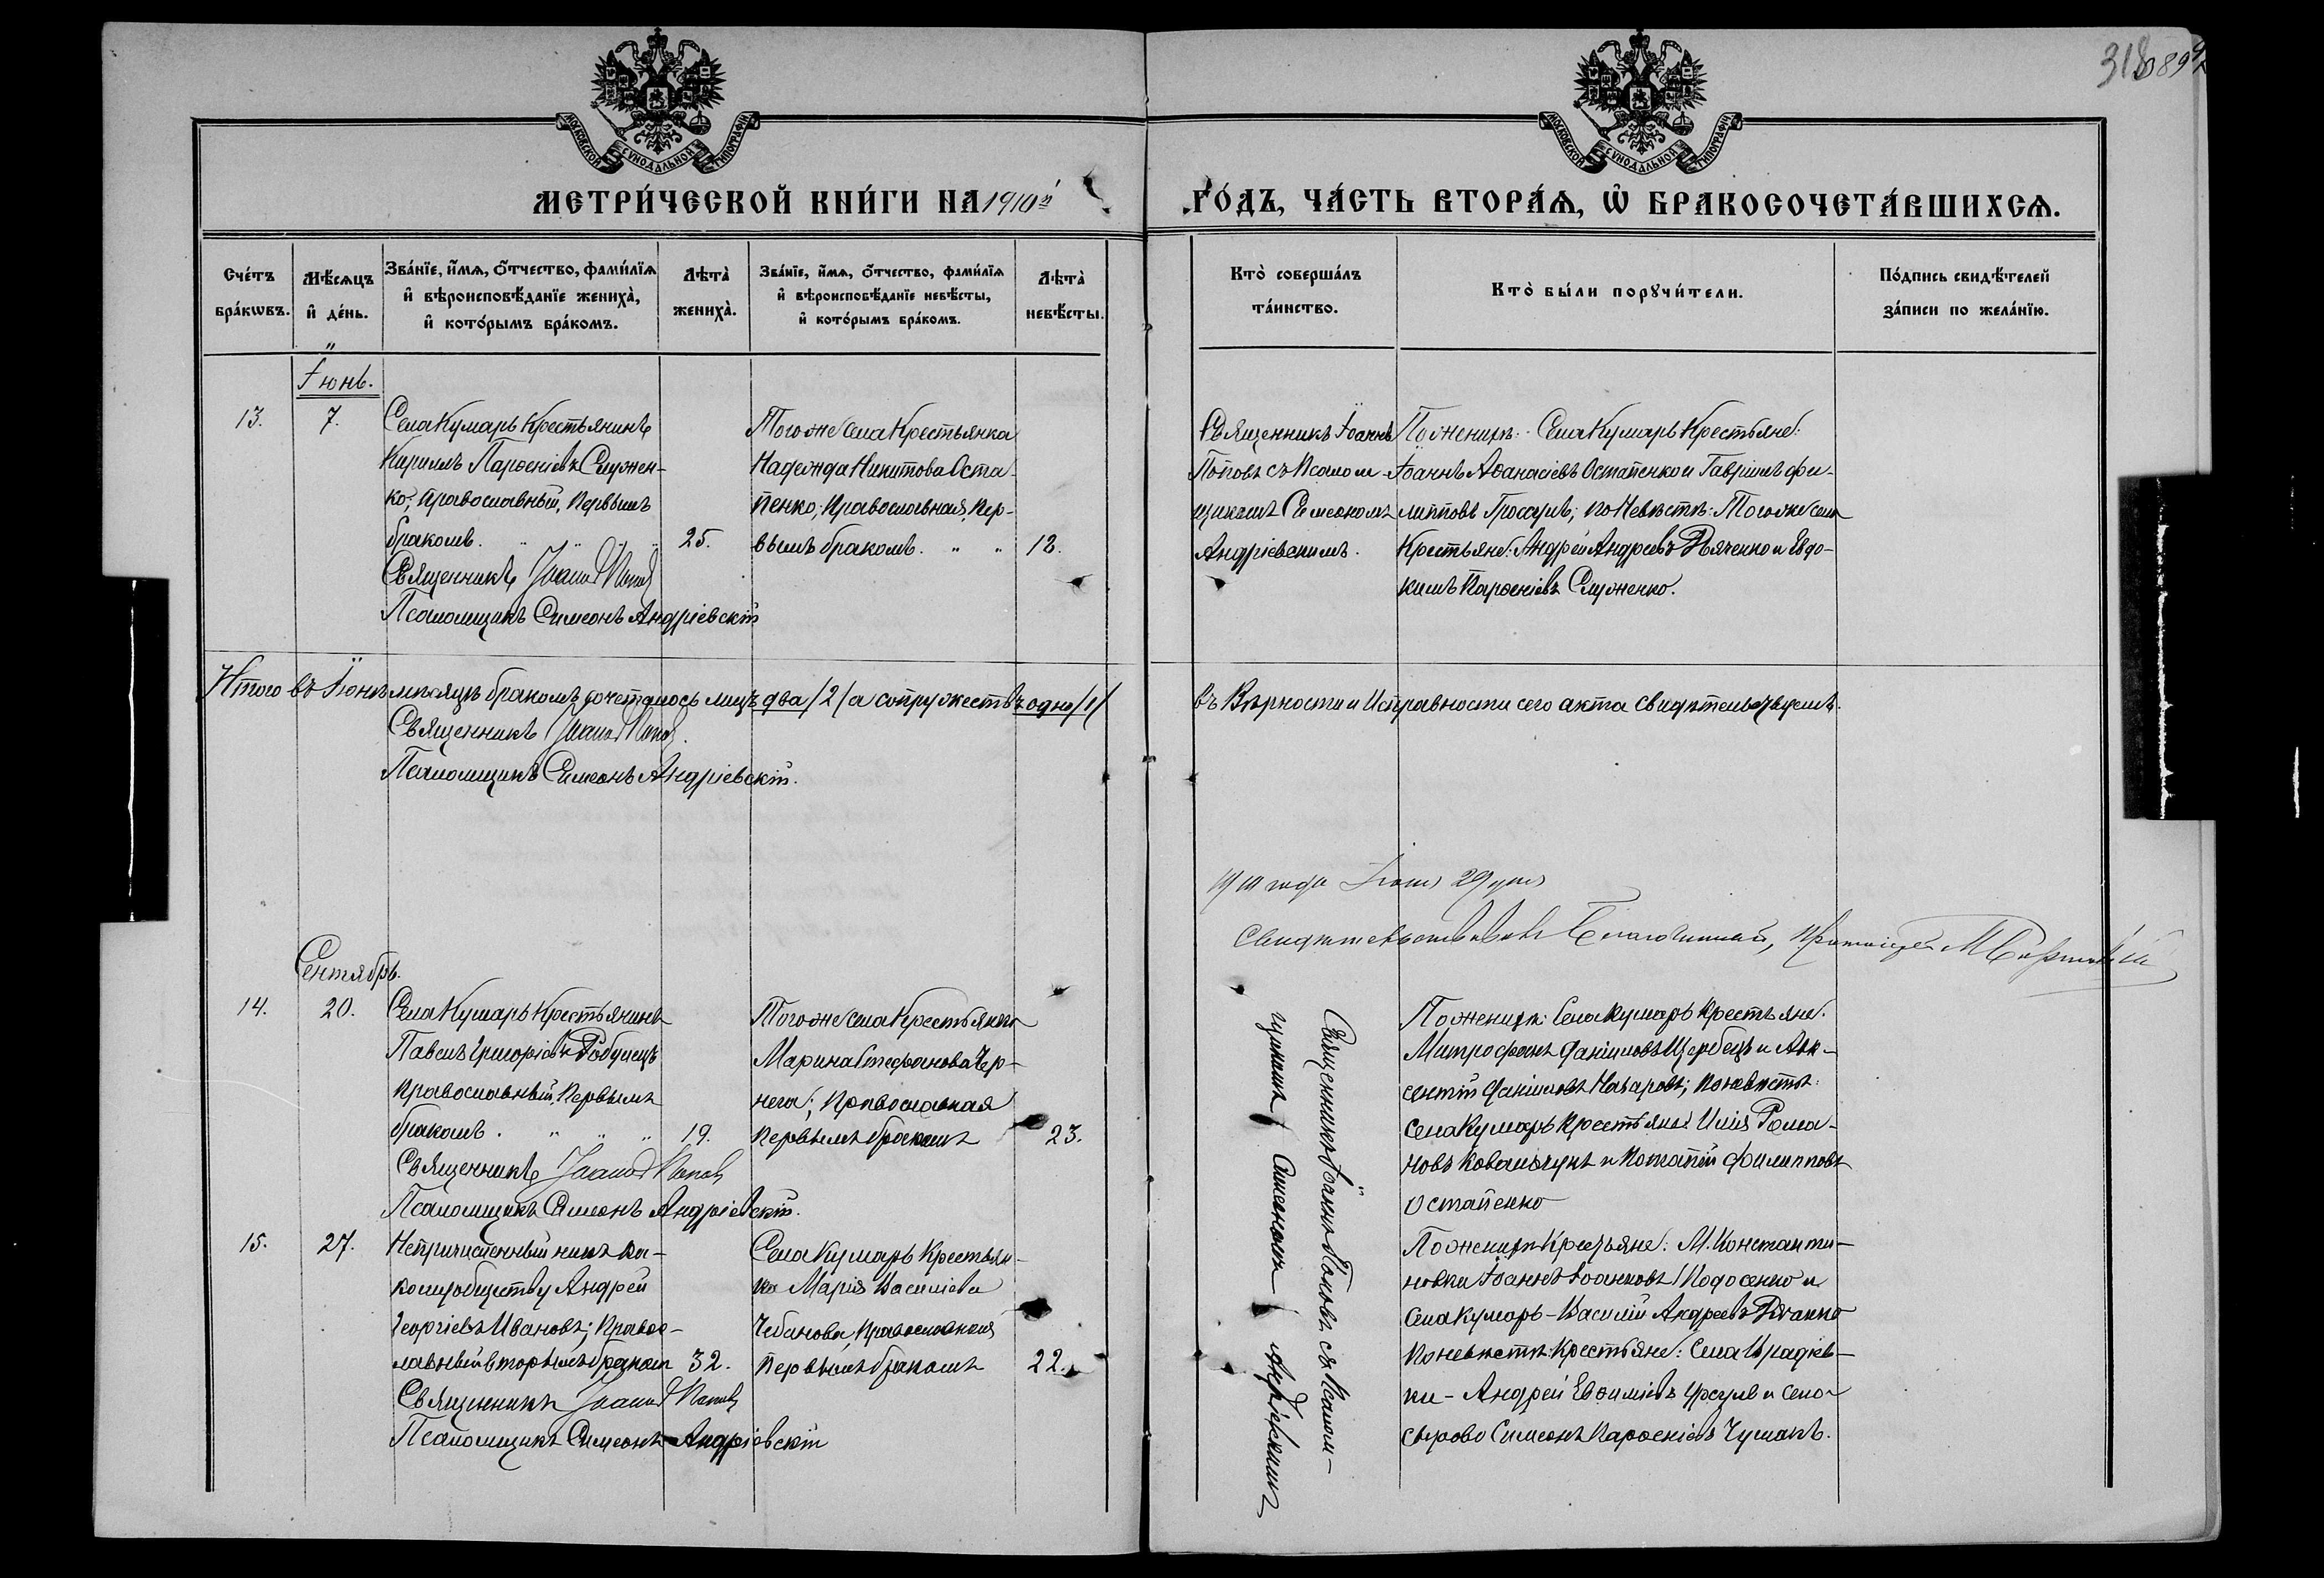 318 089
МОСКОВСКОЙ СУНОДАЛЬНОЙ ТИПОГРАФІИ
МОСКОВСКОЙ СУНОДАЛЬНОЙ ТИПОГРАФІИ
МЕТРИ́ЧЕСКОЙ КНИ́ГИ НА 1910й
ГО́ДЪ, ЧА́СТЬ ВТОРА́Ѧ, Ѡ҆ БРАКОСОЧЕТА́ВШИХСѦ.
Сче́тъ бра́кѡвъ.
Мѣ́сѧцъ и҆ де́нь.
Зва́нїе, и҆́мѧ, ѻ҆́тчество, фами́лїѧ
и҆ вѣроисповѣ́данїе жениха̀,
и҆ кото́рымъ бра́комъ.
Лѣта̀ жениха̀.
Зва́нїе, и҆́мѧ, ѻ҆́тчество, фами́лїѧ
и҆ вѣроисповѣ́данїе невѣ́сты,
и҆ кото́рымъ бра́комъ.
Лѣта̀ невѣ́сты.
Кто̀ соверша́лъ
та́инство.
Кто̀ бы́ли порꙋчи́тели.
По́дпись свидѣ́телей
за́писи по жела́нїю.
Іюнь.
13.
7.
Села Кумарь Крестьянинъ
Кириллъ Парѳеніевъ Служен-
ко, православный, первымъ
бракомъ. " " "
25.
Священникъ Іоаннъ Поповъ
Псаломщикъ Симеонъ Андріевскій
Того же села Крестьянка
Надежда Никитова Оста-
пенко, православная, пер-
вымъ бракомъ. " "
18.
Священникъ Іоаннъ
Поповъ съ Псалом-
щикомъ Симеономъ
Андріевскимъ.
По женихѣ: Села Кумарь Крестьяне:
Іоаннъ Аѳанасіевъ Остапенко и Гавріилъ Фи-
липповъ; по Невѣстѣ: Того же села
Крестьяне: Андрей Андреевъ Дяченко и Евдо-
кимъ Парѳеніевъ Служенко.
Итого въ Іюнѣ мѣсяцѣ бракомъ сочеталось лицъ два /2/ а супружествъ одно /1/
въ Вѣрности и Исправности сего акта свидѣтельствуемъ.
Священникъ Іоаннъ Поповъ.
Псаломщикъ Симеонъ Андріевскій.
1910 года Іюня 29 дня
Свидѣтельствовалъ Благочинный, Протоіерей М
Сентябрь.
14.
20.
Села Кумарь Крестьянинъ
Павелъ Григоріевъ
православный, первымъ
бракомъ. " " "
19.
Священникъ Іоаннъ Поповъ
Псаломщикъ Симеонъ Андріевскій.
Того же села Крестьянка
Марина Стефанова Чер-
нега; православная
первымъ бракомъ
23.
Священникъ Іоаннъ Поповъ съ Псалом-
щикомъ Симеономъ Андріевскимъ
По женихѣ: Села Кумарь крестьяне:
Митрофанъ Даніиловъ Щербецъ и Авк-
сентій Даніиловъ Назаровъ; по невѣстѣ:
села Кумарь крестьяне: Илія Рома-
новъ Ковальчукъ и Потапій Филипповъ
Остапенко
15.
27.
Непричисленный ни къ ка-
кому обществу Андрей
Георгіевъ Ивановъ; право-
лавный вторымъ бракомъ
32.
Священникъ Іоаннъ Поповъ
Псаломщикъ Симеонъ Андріевскій
Села Кумарь Крестьян-
ка Марія Василіева
Чебанова православная
первымъ бракомъ
22.
По женихѣ Крестьяне: М. Константи-
новки Іоаннъ Іоанновъ и
села Кумарь - Василій Андреевъ
По невѣстѣ: Крестьяне: Села
ки - Андрей Евѳиміевъ и села
Симеонъ Парѳеніевъ Чумакъ.